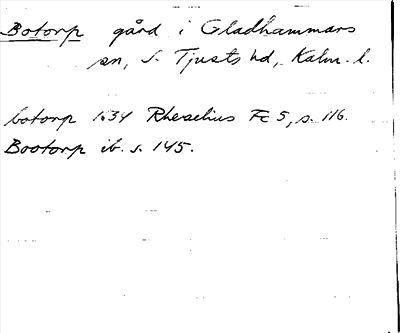 Botorp gård i Gladhammars
sn, S. Tjusts hd, Kalm. l.
botorp 1634 Rhezelius Fc 5, s. 116.
Bootorp ib. s. 145.